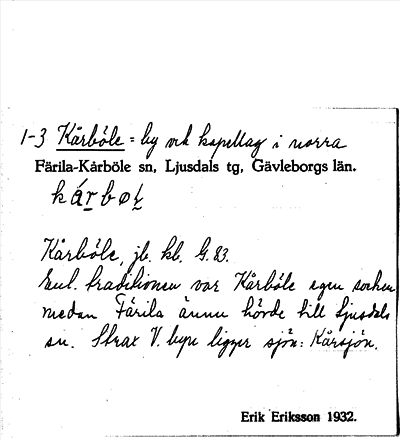 1-3 Kårböle = by och kapellag i norra
Färila-Kårböle sn, Ljusdals tg, Gävleborgs län.
kårbøl
Kårböle, jb. kb. G. 83.
Enl. traditionen var Kårböle egen socken
medan Färila ännu hörde till Ljusdals
sn. Strax V. byn ligger sjön: Kårsjön.
Erik Eriksson 1932.